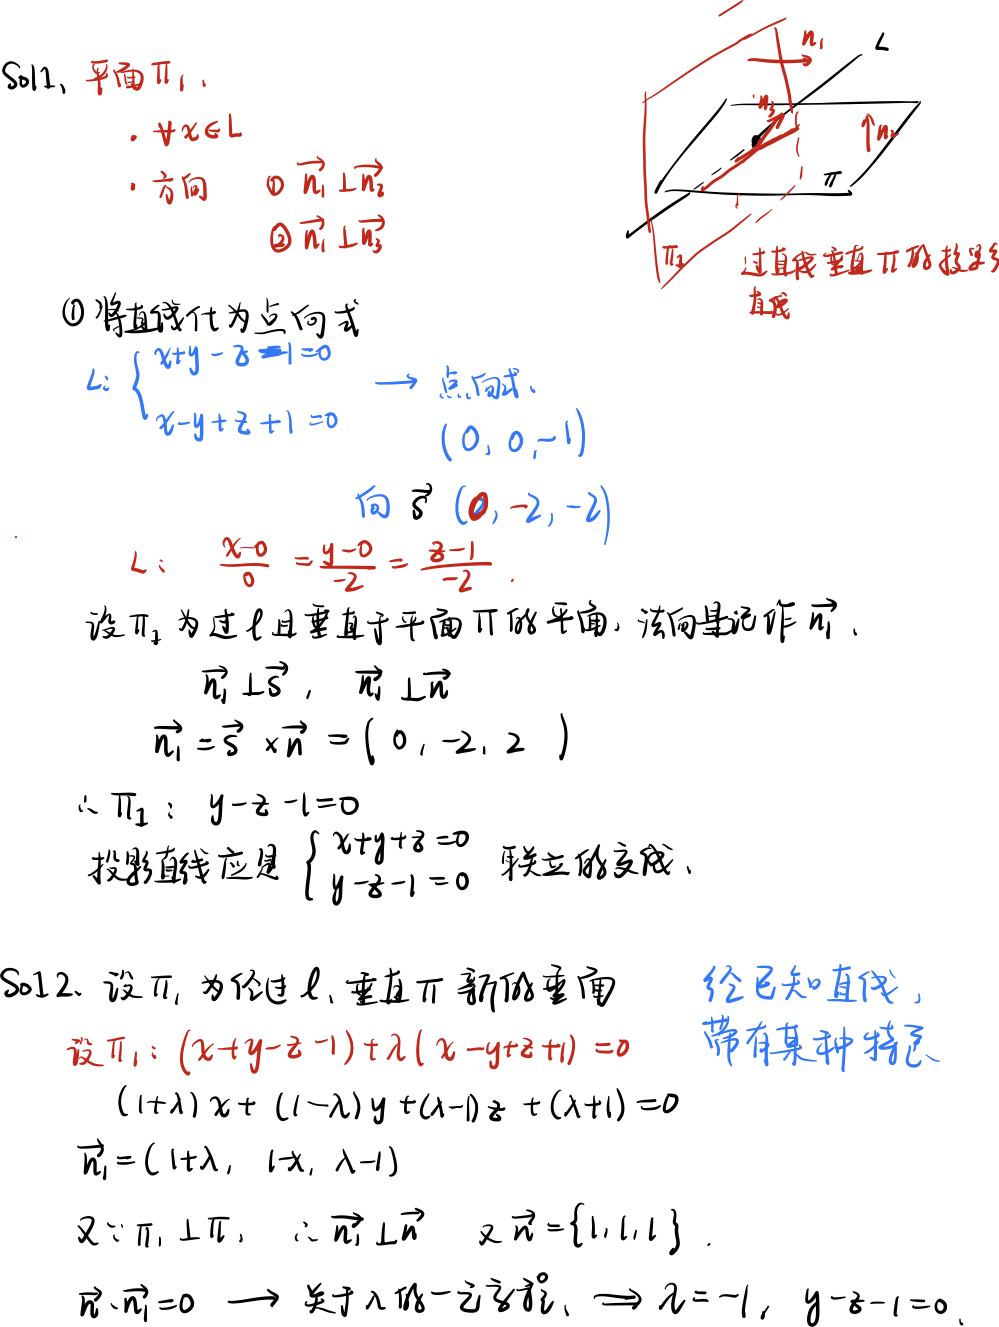 Sol1、平面π₁.
· ∀x∈L
· 方向 ① n₁⊥n₂
② n₁⊥n₃
n₁
L
n₃
n₂
π
π₁
过直线垂直π的投影
直线
① 将直线化为点向式
L: { x+y-z-1=0
x-y+z+1=0
→ 点向式.
(0, 0, -1)
向 s⃗ (0, -2, -2)
L: (x-0)/0 = (y-0)/-2 = (z-1)/-2 .
设π₁为过l且垂直于平面π的平面, 法向量记作 n₁⃗.
n₁⃗⊥s⃗, n₁⃗⊥n⃗
n₁⃗ = s⃗ × n⃗ = ( 0, -2, 2 )
∴ π₁: y-z-1=0
投影直线应是 { x+y+z=0
y-z-1=0
联立的交线.
Sol2、设π₁为经过l、垂直π 新的垂面
经已知直线,
带有某种特色
设π₁: (x+y-z-1)+λ(x-y+z+1)=0
(1+λ)x+(1-λ)y+(λ-1)z+(λ+1)=0
n₁⃗=(1+λ, 1-λ, λ-1)
又∵π₁⊥π, ∴n₁⃗⊥n⃗ 又n⃗={1,1,1}.
n⃗·n₁⃗=0 → 关于λ的一元方程, ⇒ λ=-1, y-z-1=0.